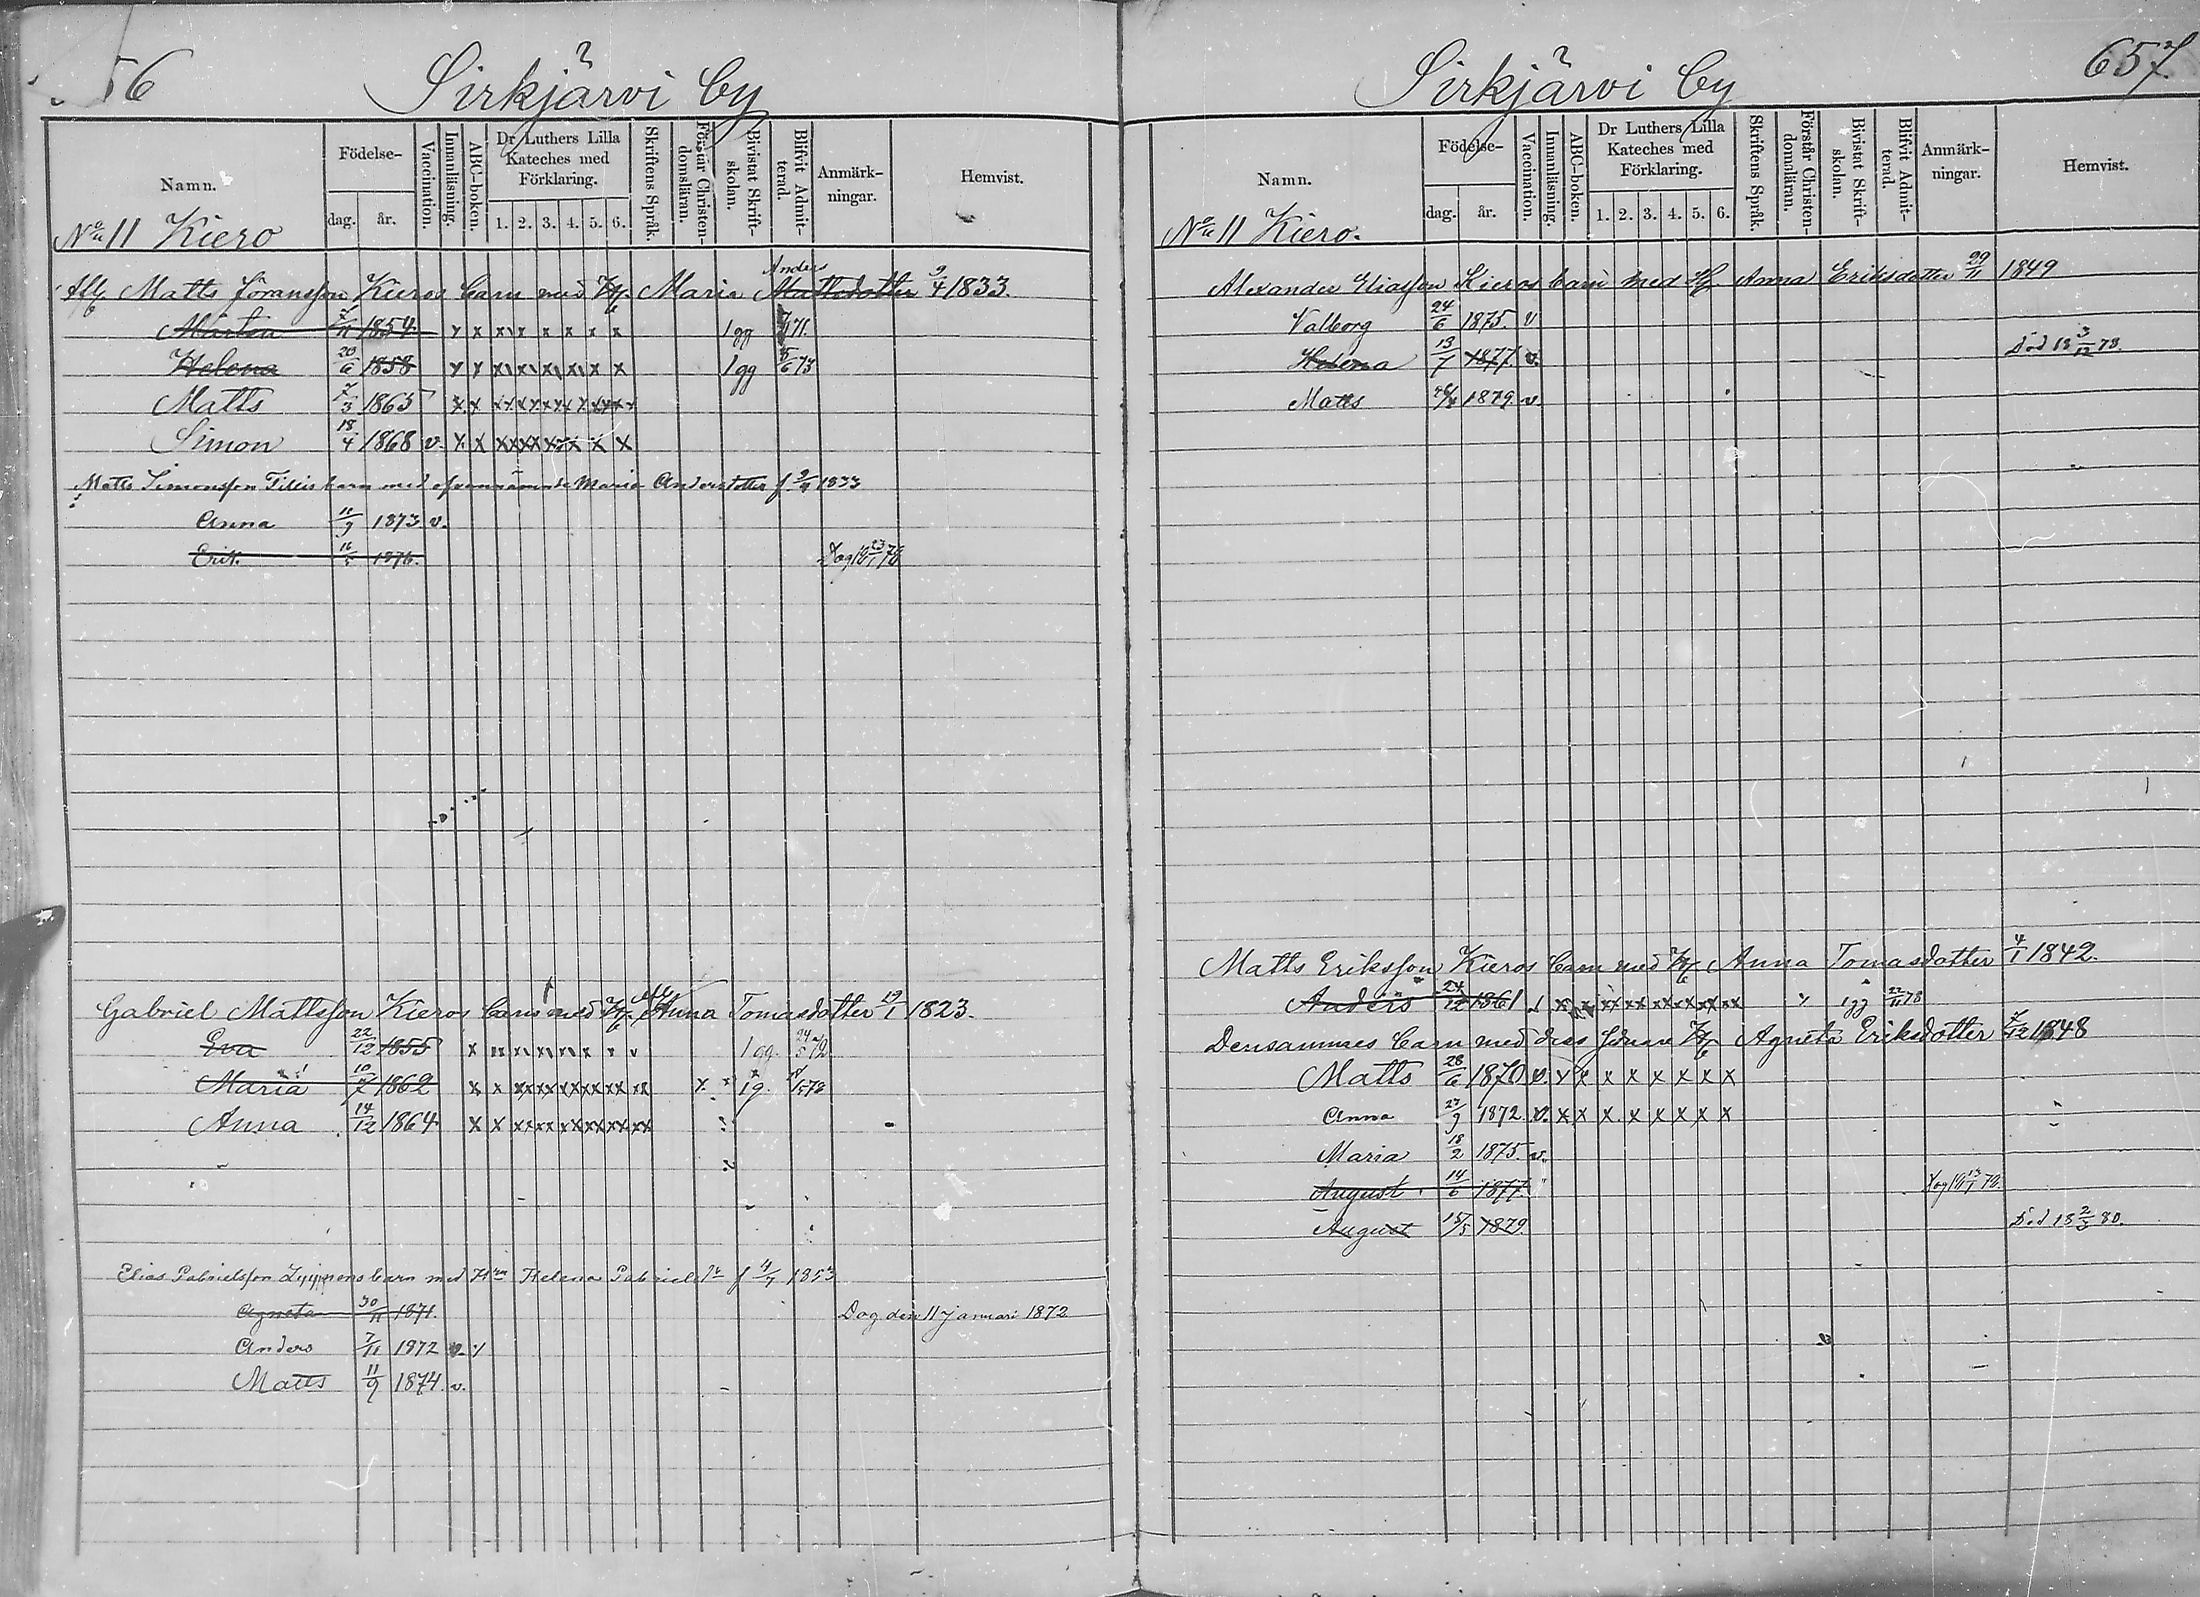 56 Sirkjärvi by
Namn. Födelse- dag. år. Vaccination. Innanläsning. ABC-boken. Dr Luthers Lilla Kateches med Förklaring. 1. 2. 3. 4. 5. 6. Skriftens Språk. Förstår Christendomsläran. Bivistat Skriftskolan. Blifvit Admitterad. Anmärkningar. Hemvist.
No 11 Kiero
Anders
Afl. Matts Jöransson Kieros barn med H. Maria Mattsdotter 9/4 1833.
Mårten 7/11 1854 x x x x x x x x 1 gg 71.
Helena 20/6 1858 x x x x x x x x 1 gg 5/6 73
Matts 7/3 1865 x x x x x x x x
Simon 18/4 1868 v. x x x x x x x x
Matts Simonsson Tillis barn med ofvannämnde Maria Andersdotter f. 9/4 1833
Anna 11/9 1873 v.
Erik 16/5 1876. Dog 18 23/1 78
Gabriel Mattsson Kieros barn med H. Afl. Anna Tomasdotter 19/1 1823.
Eva 22/12 1855 x x x x x x x v 1 gg. 24/5 72
Maria 10/7 1862 x x xx xx xx xx xx xx x 1 g. 78
Anna 14/12 1864 x x xx xx xx xx xx xx
Elias Gabrielsson Lyyppens barn med Hu Helena Gabrielsdr f 4/7 1853
Agneta 30/11 1871. Dog den 11 Januari 1872
Anders 7/11 1872 v. y
Matts 11/9 1874. v.
Sirkjärvi by 657.
Namn. Födelse- dag. år. Vaccination. Innanläsning. ABC-boken. Dr Luthers Lilla Kateches med Förklaring. 1. 2. 3. 4. 5. 6. Skriftens Språk. Förstår Christendomsläran. Bivistat Skriftskolan. Blifvit Admitterad. Anmärkningar. Hemvist.
No 11 Kiero.
Alexander Eliasson Kieros barn med H. Anna Eriksdotter 29/11 1849
Valborg 24/6 1875. v
Helena 13/7 1877. v. Död 18 3/12 78.
Matts 1879. v.
Matts Eriksson Kieros barn med H. Anna Tomasdotter 4/1 1842.
Anders 24/12 1861 x x xx xx xx xx xx xx 1 gg 22/11 78
Densammes barn med dess senare H. Agneta Eriksdotter 7/12 1848
Matts 28/6 1870 v. x x x x x x x x
Anna 27/9 1872. v. x x x x x x x x
Maria 18/2 1875. v.
August 14/6 1877 Dog 18 13/1 78.
August 15/5 1879. Död 18 2/3 80.